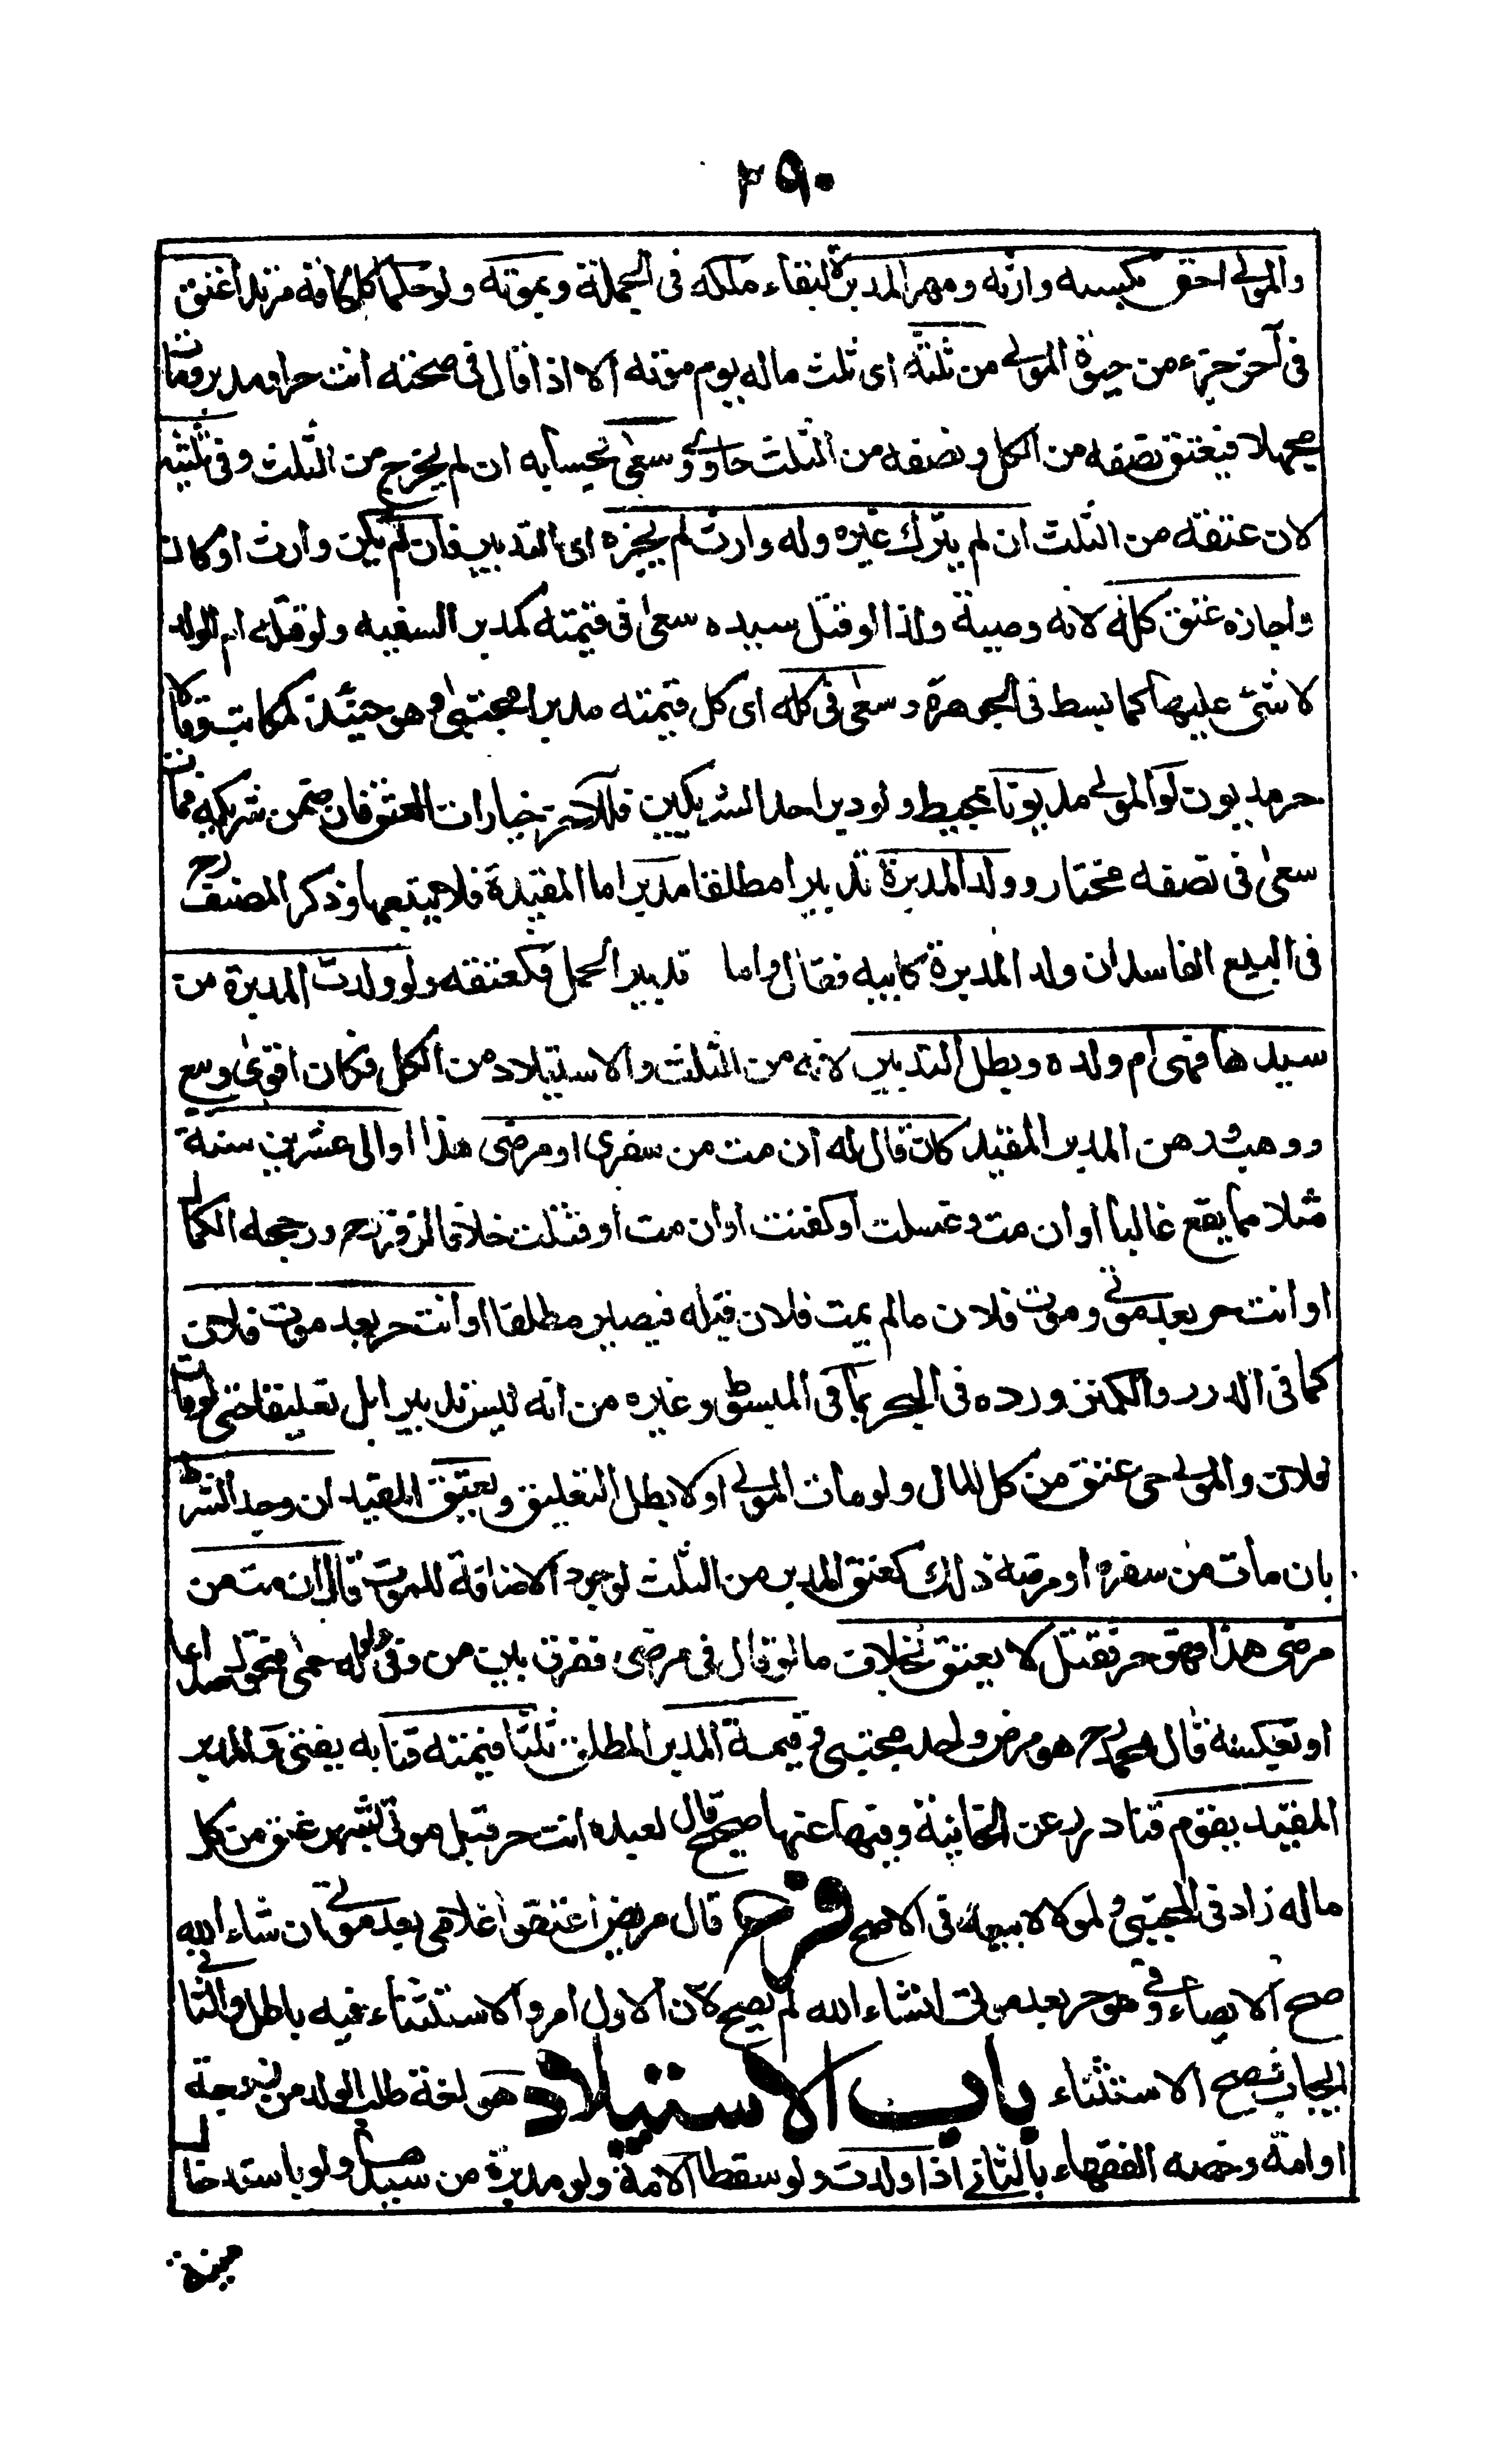 ٢٩٠
والمولى احق بكسبه وارثه ومهر المدبرة لبقاء ملكه فى الجملة وبموته ولو حكما كلحاقه مرتدا عتق
فى آخر جزء من حيوة المولى من ثلثه اى ثلث ماله يوم موته الا اذا قال فى صحته انت حر او مدبر ومات
مجهلا فيعتق نصفه من الكل ونصفه من الثلث حاوى وسعى بحسابه ان لم يخرج من الثلث وفى ثلثيه
لان عتقه من الثلث ان لم يترك غيره وله وارث لم يجزه اى التدبير فان لم يكن وارث او كان
واجازه عتق كله لانه وصية ولذا لو قتل سيده سعى فى قيمته كمدبر السفيه ولو قتلته ام الولد
لا شئ عليها كما بسط فى الجوهرة وسعى فى كله اى كل قيمته مدبرا مجتبى وهو حينئذ كمكاتب وقالا
حر مديون لو المولى مديونا بمحيط ولو دبر احد الشريكين فللآخر خيارات العتق فان ضمن شريكه فمات
سعى فى نصفه مختار وولد المدبرة تدبيرا مطلقا مدبر اما المقيدة فلا يتبعها وذكر المصنف رح
فى البيع الفاسد ان ولد المدبرة كابيه فقال واما تدبير الحمل فكعتقه ولو ولدت المدبرة من
سيدها فهى ام ولده وبطل التدبير لانه من الثلث والاستيلاد من الكل فكان اقوى وبيع
ووهب ورهن المدبر المقيد كان قال له ان مت من سفرى او مرضى هذا او الى عشرين سنة
مثلا مما يقع غالبا او ان مت وغسلت او كفنت او ان مت او قتلت خلافا لزفر رح ورجحه الكمال
او انت حر بعد موتى وموت فلان ما لم يمت فلان قبله فيصير مطلقا او انت حر بعد موت فلان
كما فى الدرر والكنز ورده فى البحر بما فى المبسوط وغيره من انه ليس تدبيرا بل تعليقا حتى لو مات
فلان والمولى حى عتق من كل المال ولو مات المولى اولا بطل التعليق ويعتق المقيد ان وجد الشرط
بان مات من سفره او مرضه ذلك كعتق المدبر من الثلث لوجود الاضافة للموت قال ان مت من
مرضى هذا فهو حر فقتل لا يعتق بخلاف ما لو قال فى مرضى ففرق بين من وفى ولو له حمى فتحول صداعا
او بعكسه قال محمد رح هو مرض واحد مجتبى وقيمة المدبر المطلق ثلثا قيمته قنا به يفتى والمدبر
المقيد يقوم قنا درر عن الخانية وفيها عنها صحيح قال لعبده انت حر قبل موتى بشهر عتق من كل
ماله زاد فى المجتبى ولمولاه بيعه فى الاصح فرع قال مريض اعتقوا غلامى بعد موتى ان شاء الله
صح الايصاء وفى هو حر بعد موتى انشاء الله لم يصح لان الاول امر والاستثناء فيه باطل والثانى
ايجاب فيصح الاستثناء باب الاستيلاد هو لغة طلب الولد من زوجة
او امة وخصه الفقهاء بالثانى اذا ولدت ولو سقطا الامة ولو مدبرة من سيدها ولو باستدخا
منيه